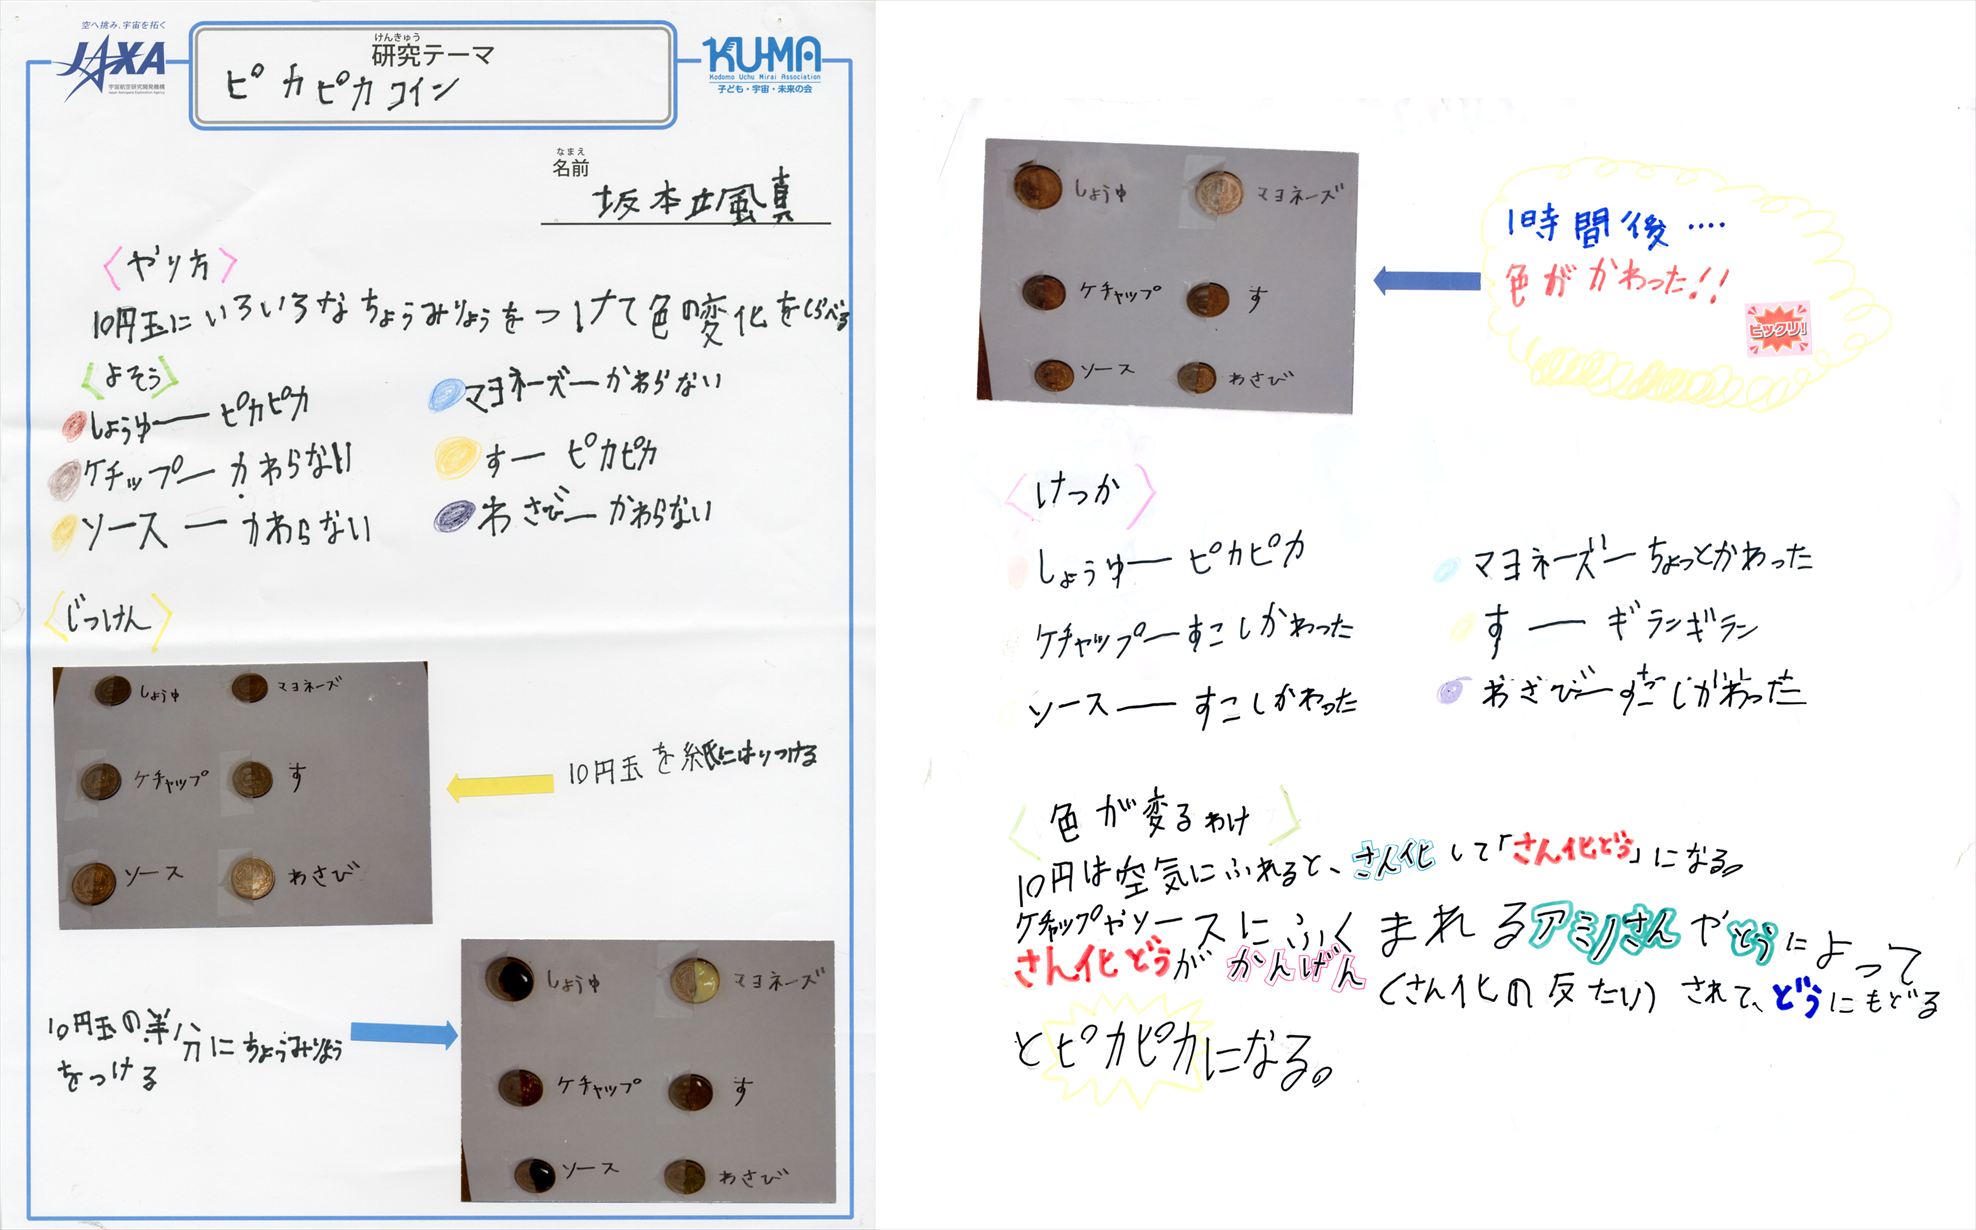 空へ挑み、宇宙を拓く
JAXA
宇宙航空研究開発機構
Japan Aerospace Exploration Agency
けんきゅう
研究テーマ
ピカピカコイン
KU-MA
Kodomo Uchu Mirai Association
子ども・宇宙・未来の会
なまえ
名前
坂本颯真
〈やり方〉
10円玉にいろいろなちょうみりょうをつけて色の変化をしらべる
〈よそう〉
しょうゆ―ピカピカ
マヨネーズ―かわらない
ケチップ―かわらない
す―ピカピカ
ソース―かわらない
わさび―かわらない
〈じっけん〉
しょうゆ
マヨネーズ
ケチャップ
す
ソース
わさび
10円玉を紙にはりつける
10円玉の半分にちょうみりよう
をつける
しょうゆ
マヨネーズ
ケチャップ
す
ソース
わさび
しょうゆ
マヨネーズ
ケチャップ
す
ソース
わさび
1時間後‥‥
色がかわった!!
ビックリ!
〈けっか〉
しょうゆ―ピカピカ
マヨネーズ―ちょっとかわった
ケチャップ―すこしかわった
す―ギランギラン
ソース―すこしかわった
わさび―すこしかわった
〈色が変るわけ〉
10円は空気にふれると、さん化して「さん化どう」になる。
ケチャップやソースにふくまれるアミノさんやとうによって
さん化どうがかんげん(さん化の反たい)されて、どうにもどる
とピカピカになる。